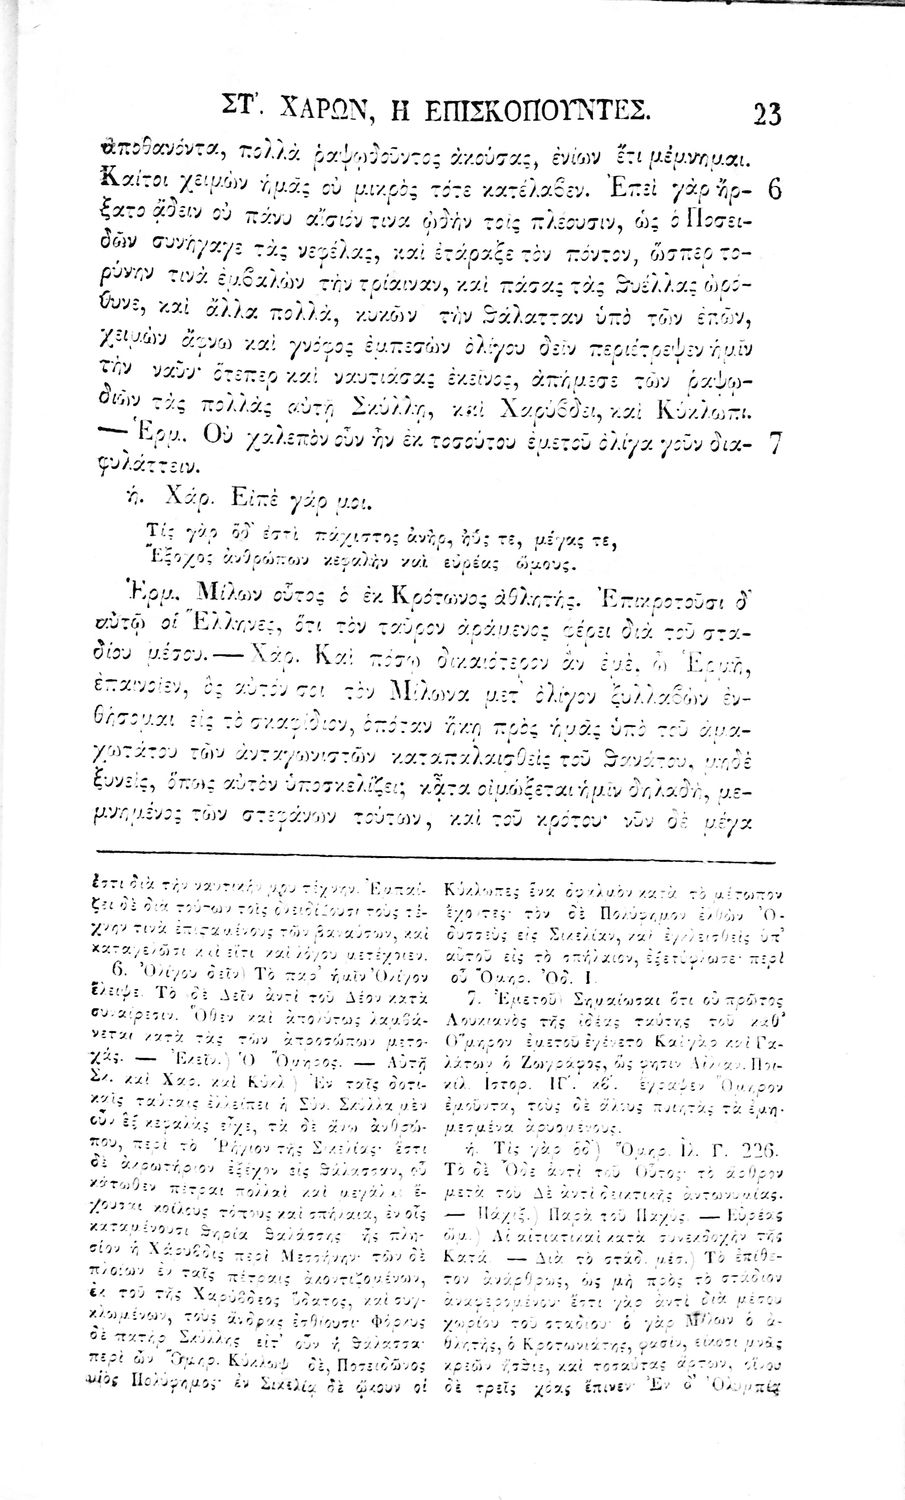 ΣΤ'. ΧΑΡΩΝ, Η ΕΠΙΣΚΟΠΟΥΝΤΕΣ. 23
ἀποθανόντα, πολλὰ ῥαψῳδοῦντος ἀκούσας, ἐνίων ἔτι μέμνημαι.
Καίτοι χειμὼν ἡμᾶς οὐ μικρὸς τότε κατέλαβεν. Ἐπεὶ γὰρ ἤρ- 6
ξατο ᾄδειν οὐ πάνυ αἴσιόν τινα ᾠδὴν τοῖς πλέουσιν, ὡς ὁ Ποσει-
δῶν συνήγαγε τὰς νεφέλας, καὶ ἐτάραξε τὸν πόντον, ὥσπερ το-
ρύνην τινὰ ἐμβαλὼν τὴν τρίαιναν, καὶ πάσας τὰς θυέλλας ὠρό-
θυνε, καὶ ἄλλα πολλὰ, κυκῶν τὴν θάλατταν ὑπὸ τῶν ἐπῶν,
χειμὼν ἄφνω καὶ γνόφος ἐμπεσὼν ὀλίγου δεῖν περιέτρεψεν ἡμῖν
τὴν ναῦν· ὅτεπερ καὶ ναυτιάσας ἐκεῖνος, ἀπήμεσε τῶν ῥαψῳ-
διῶν τὰς πολλὰς αὐτῇ Σκύλλῃ, καὶ Χαρύβδει, καὶ Κύκλωπι.
— Ἑρμ. Οὐ χαλεπὸν οὖν ἦν ἐκ τοσούτου ἐμετοῦ ὀλίγα γοῦν δια- 7
φυλάττειν.
ή. Χάρ. Εἰπὲ γάρ μοι.
Τίς γὰρ ὅδ' ἐστὶ πάχιστος ἀνὴρ, ἠΰς τε, μέγας τε,
Ἔξοχος ἀνθρώπων κεφαλὴν καὶ εὐρέας ὤμους.
Ἑρμ. Μίλων οὗτος ὁ ἐκ Κρότωνος ἀθλητής. Ἐπικροτοῦσι δ'
αὐτῷ οἱ Ἕλληνες, ὅτι τὸν ταῦρον ἀράμενος φέρει διὰ τοῦ στα-
δίου μέσου. — Χάρ. Καὶ πόσῳ δικαιότερον ἂν ἐμὲ, ὦ Ἑρμῆ,
ἐπαινοῖεν, ὃς αὐτόν σοι τὸν Μίλωνα μετ' ὀλίγον ξυλλαβὼν ἐν-
θήσομαι εἰς τὸ σκαφίδιον, ὁπόταν ἥκῃ πρὸς ἡμᾶς ὑπὸ τοῦ ἀμα-
χωτάτου τῶν ἀνταγωνιστῶν καταπαλαισθεὶς τοῦ θανάτου, μηδὲ
ξυνεὶς, ὅπως αὐτὸν ὑποσκελίζει; κᾆτα οἰμώξεται ἡμῖν δηλαδὴ, με-
μνημένος τῶν στεφάνων τούτων, καὶ τοῦ κρότου· νῦν δὲ μέγα
ἐστι διὰ τὴν ναυτικήν μου τέχνην. Ἐμπαί-
ζει δὲ διὰ τούτων τοῖς ὀνειδίζουσι τοὺς τέ-
χνην τινὰ ἐπισταμένους τῶν βαναύσων, καὶ
καταγελῶσι καὶ εἴτι καὶ λόγου μετέχοιεν.
6. Ὀλίγου δεῖν) Τὸ παρ' ἡμῖν Ὀλίγον
ἔλειψε. Τὸ δὲ Δεῖν ἀντὶ τοῦ Δέον κατὰ
συναίρεσιν. Ὅθεν καὶ ἀπολύτως λαμβά-
νεται κατὰ τὰς τῶν ἀπροσώπων μετο-
χάς. — Ἐκεῖν.) Ὁ Ὅμηρος. — Αὐτῇ
Σκ. καὶ Χαρ. καὶ Κύκλ.) Ἐν ταῖς δοτι-
καῖς ταύταις ἐλλείπει ἡ Σύν. Σκύλλα μὲν
οὖν ἓξ κεφαλὰς εἶχε, τὰ δὲ ἄνω ἀνθρώ-
που, περὶ τὸ Ῥήγιον τῆς Σικελίας· ἔστι
δὲ ἀκρωτήριον ἐξέχον εἰς θάλασσαν, οὗ
κάτωθεν πέτραι πολλαὶ καὶ μεγάλαι ἔ-
χουσαι κοίλους τόπους καὶ σπήλαια, ἐν οἷς
καταμένουσι θηρία θαλάσσης ἧς πλη-
σίον ἡ Χάρυβδις περὶ Μεσσήνην· τῶν δὲ
πλοίων ἐν ταῖς πέτραις ἀκοντιζομένων,
ἐκ τοῦ τῆς Χαρύβδεος ὕδατος, καὶ συγ-
κλωμένων, τοὺς ἄνδρας ἐσθίουσι· Φόρκυς
δὲ πατὴρ Σκύλλης εἴτ' οὖν ἡ θάλασσα·
περὶ ὧν Ὅμηρ. Κύκλωψ δὲ, Ποτειδῶνος
υἱὸς Πολύφημος· ἐν Σικελίᾳ δὲ ᾤκουν οἱ
Κύκλωπες ἕνα ὀφθαλμὸν κατὰ τὸ μέτωπον
ἔχοντες· τὸν δὲ Πολύφημον ἐλθὼν Ὀ-
δυσσεὺς εἰς Σικελίαν, καὶ ἐγκλεισθεὶς ὑπ'
αὐτοῦ εἰς τὸ σπήλαιον, ἐξετύφλωσε· περὶ
οὗ Ὅμηρ. Ὀδ. Ι.
7. Ἐμετοῦ) Σημαίωσαι ὅτι οὐ πρῶτος
Λουκιανὸς τῆς ἰδέας ταύτης τοῦ καθ'
Ὅμηρον ἐμετοῦ ἐγένετο Καὶ γὰρ καὶ Γα-
λάτων ὁ Ζωγράφος, ὥς φησιν Αἰλιαν. Ποι-
κίλ. Ἱστορ. ΙΓ'. κβ'. ἔγραψεν Ὅμηρον
ἐμοῦντα, τοὺς δὲ ἄλλους ποιητὰς τὰ ἐμη-
μεσμένα ἀρυομένους.
ή. Τίς γὰρ ὅδ') Ὅμηρ. Ἰλ. Γ. 226.
Τὸ δὲ Ὅδε ἀντὶ τοῦ Οὗτος· τὸ ἄρθρον
μετὰ τοῦ Δὲ ἀντὶ δεικτικῆς ἀντωνυμίας.
— Πάχις.) Παρὰ τοῦ Παχύς. — Εὐρέας
ὤμ.) Αἱ αἰτιατικαὶ κατὰ συνεκδοχὴν τῆς
Κατά. — Διὰ τὸ στάδ. μέσ.) Τὸ ἐπίθε-
τον ἀνάρθρως, ὡς μὴ πρὸς τὸ στάδιον
ἀναφερομένου· ἔστι γὰρ ἀντὶ διὰ μέσου
χωρίου τοῦ σταδίου· ὁ γὰρ Μίλων ὁ ἀ-
θλητὴς, ὁ Κροτωνιάτης, φασὶν, εἴκοσι μνᾶς
κρεῶν ἤσθιε, καὶ τοσαύτας ἄρτων, οἴνου
δὲ τρεῖς χόας ἔπινεν· Ἐν δ' Ὀλυμπίᾳ